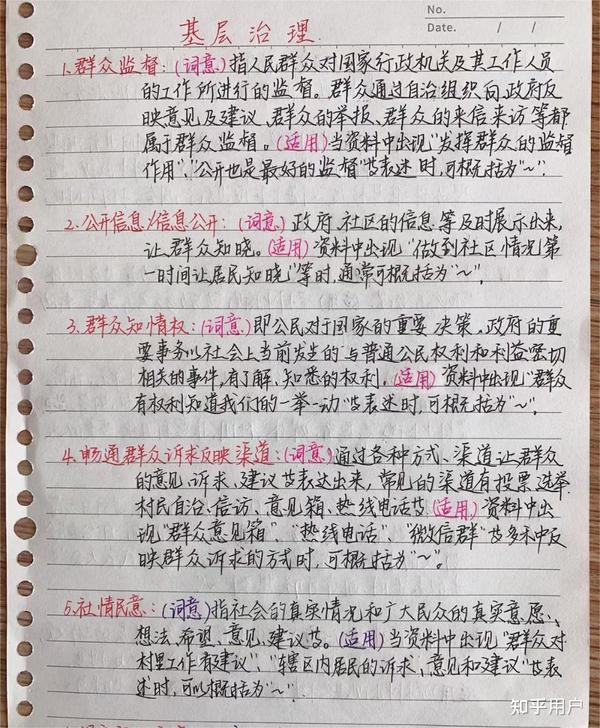 No.
Date. / /
基层治理
1.群众监督:(词意)指人民群众对国家行政机关及其工作人员
的工作所进行的监督。群众通过自治组织向政府反
映意见及建议、群众的举报、群众的来信来访等都
属于群众监督。(适用)当资料中出现"发挥群众的监督
作用"、"公开也是最好的监督"等表述时,可概括为"~"。
2.公开信息/信息公开:(词意)政府、社区的信息等及时展示出来,
让群众知晓。(适用)资料中出现"做到社区情况第
一时间让居民知晓"等时,通常可概括为"~"。
3.群众知情权:(词意)即公民对于国家的重要决策、政府的重
要事务以社会上当前发生的与普通公民权利和利益密切
相关的事件,有了解、知悉的权利。(适用)资料中出现"群众
有权利知道我们的一举一动"等表述时,可概括为"~"。
4.畅通群众诉求反映渠道:(词意)通过各种方式、渠道让群众
的意见、诉求、建议等表达出来,常见的渠道有投票选举、
村民自治、信访、意见箱、热线电话等。(适用)资料中出
现"群众意见箱"、"热线电话"、"微信群"等多种反
映群众诉求的方式时,可概括为"~"。
5.社情民意:(词意)指社会的真实情况和广大民众的真实意愿、
想法、希望、意见、建议等。(适用)当资料中出现"群众对
村里工作有建议"、"辖区内居民的诉求、意见和建议"等表
述时,可以概括为"~"。
知乎用户